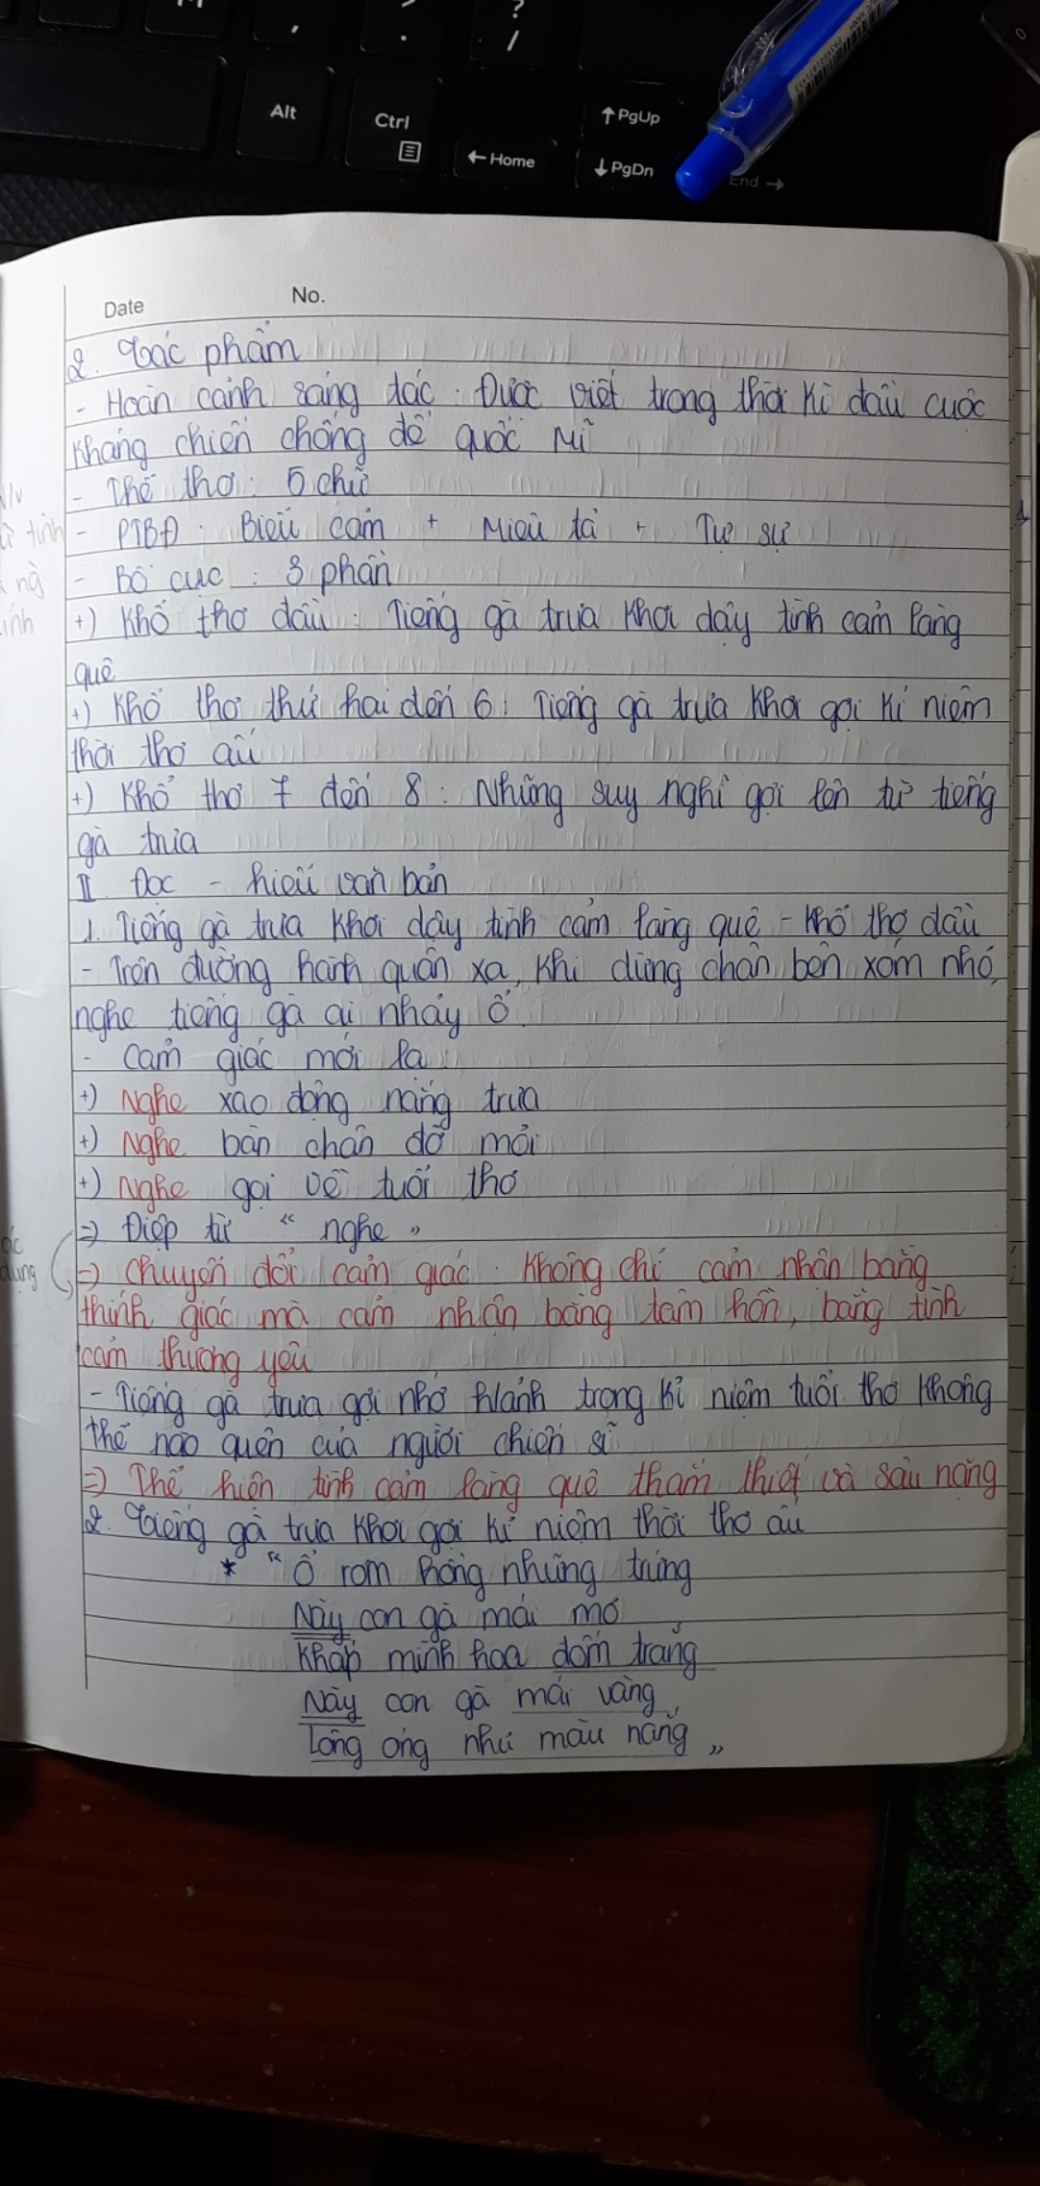 ?
/
,
.
Alt
Ctrl
↑ PgUp
← Home
↓ PgDn
End →
Date
No.
2. Tác phẩm
- Hoàn cảnh sáng tác: Được viết trong thời kì đầu cuộc
kháng chiến chống đế quốc Mĩ
- Thể thơ: 5 chữ
- PTBĐ: Biểu cảm + Miêu tả + Tự sự
- Bố cục: 3 phần
+) Khổ thơ đầu: Tiếng gà trưa khơi dậy tình cảm làng
quê
+) Khổ thơ thứ hai đến 6: Tiếng gà trưa khơi gọi kỉ niệm
thời thơ ấu
+) Khổ thơ 7 đến 8: Những suy nghĩ gợi lên từ tiếng
gà trưa
II Đọc - hiểu văn bản
1. Tiếng gà trưa khơi dậy tình cảm làng quê - khổ thơ đầu
- Trên đường hành quân xa, khi dừng chân bên xóm nhỏ,
nghe tiếng gà ai nhảy ổ.
- Cảm giác mới lạ:
+) Nghe xao động nắng trưa
+) Nghe bàn chân đỡ mỏi
+) Nghe gọi về tuổi thơ
=> Điệp từ "nghe"
=> Chuyển đổi cảm giác: Không chỉ cảm nhận bằng
thính giác mà cảm nhận bằng tâm hồn, bằng tình
cảm thương yêu
- Tiếng gà trưa gợi nhớ hình ảnh trong kỉ niệm tuổi thơ không
thể nào quên của người chiến sĩ
=> Thể hiện tình cảm làng quê thắm thiết và sâu nặng
2. Tiếng gà trưa khơi gọi kỉ niệm thời thơ ấu
* "Ổ rơm hồng những trứng
Này con gà mái mơ
Khắp mình hoa đốm trắng
Này con gà mái vàng
Lông óng như màu nắng"